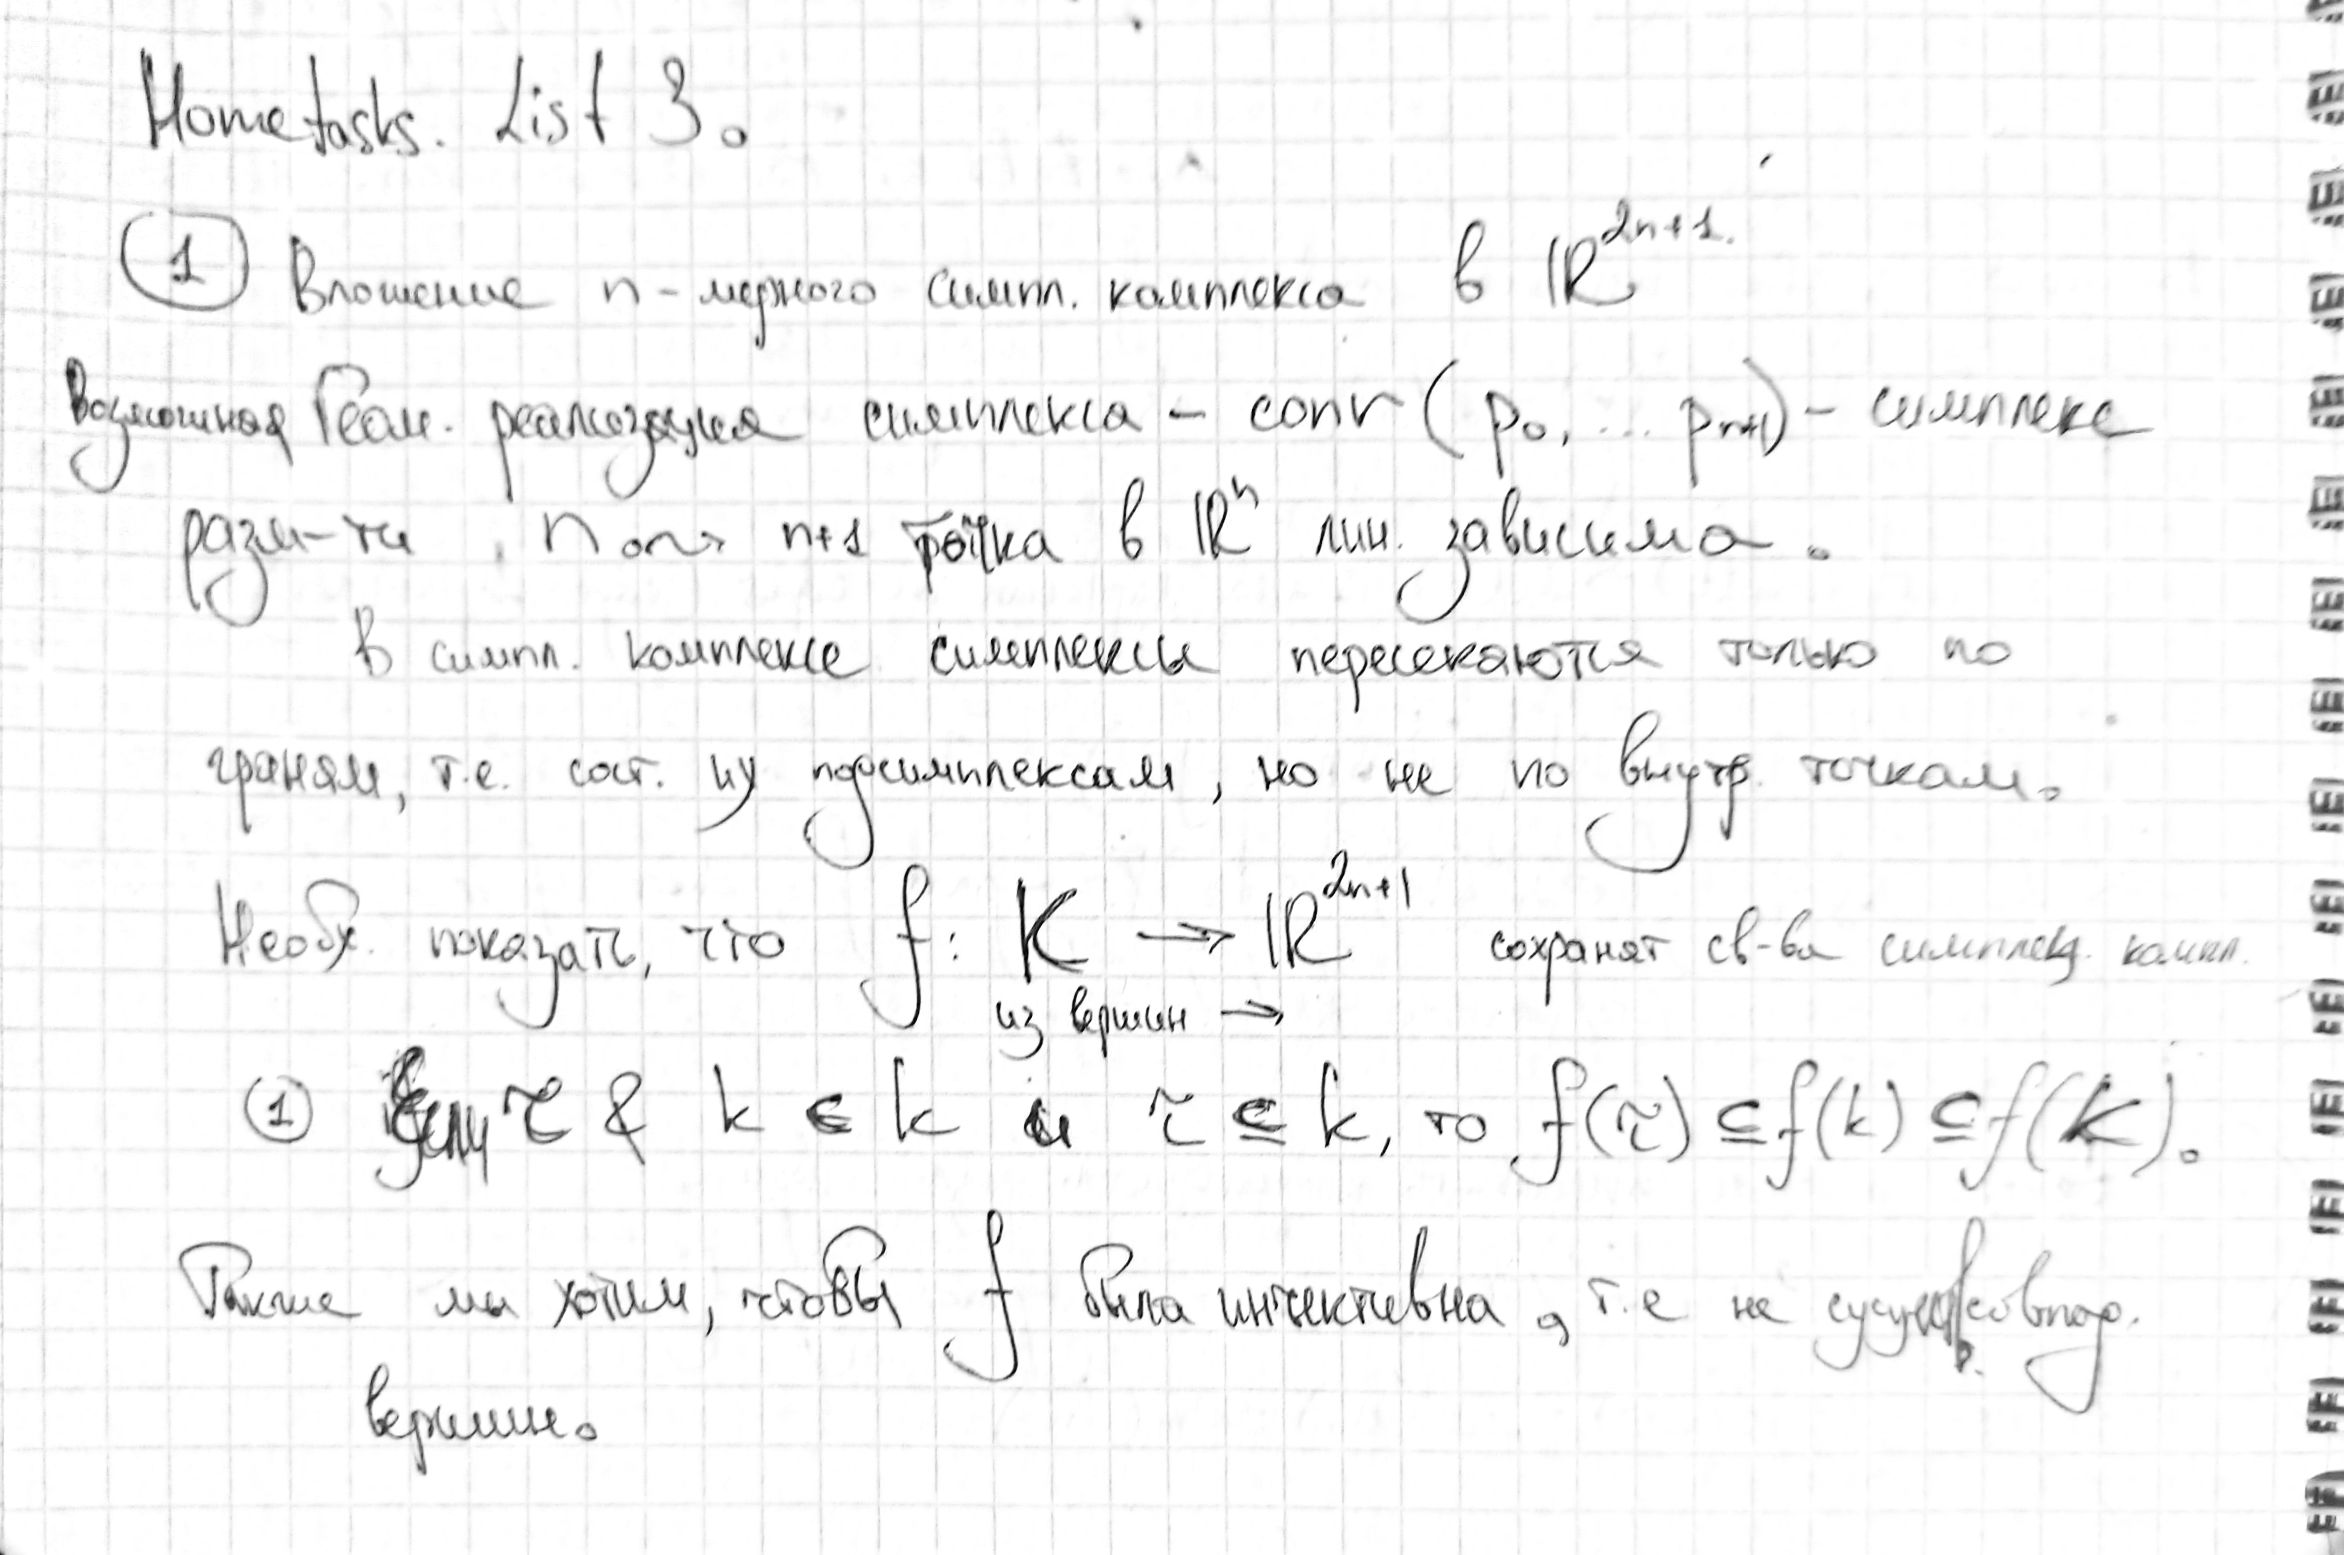 Hometasks. List 3.
① Вложение n-мерного симпл. комплекса в ℝ²ⁿ⁺¹.
Возможная Геом. реализация симплекса – conv (p₀, ... pₙ₊₁) – симплекс
разм-ти, n+1 точка в ℝⁿ лин. зависима.
В симпл. комплексе симплексы пересекаются только по
граням, т.е. сост. из подсимплексам, но не по внутр. точкам.
Необх. показать, что f: K → ℝ²ⁿ⁺¹ сохранят св-ва симплец. компл.
из вершин →
① Если τ & k ∈ k и τ ⊆ k, то f(τ) ⊆ f(k) ⊆ f(K).
Также мы хотим, чтобы f была инъективна, т.е не совпад.
вершин.